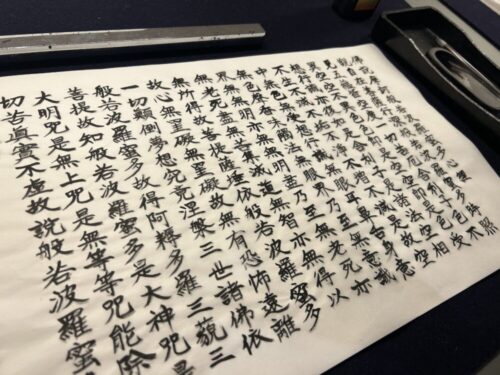 觀自在菩薩行深般若波羅蜜多時照
見五蘊皆空度一切苦厄舍利子色不異
空空不異色色即是空空即是色受
想行識亦復如是舍利子是諸法空相
不生不滅不垢不淨不增不減是故空
中無色無受想行識無眼耳鼻舌身意
無色聲香味觸法無眼界乃至無意識
界無無明亦無無明盡乃至無老死亦
無老死盡無苦集滅道無智亦無得以
無所得故菩提薩埵依般若波羅蜜多
故心無罣礙無罣礙故無有恐怖遠離
一切顛倒夢想究竟涅槃三世諸佛依
般若波羅蜜多故得阿耨多羅三藐三
菩提故知般若波羅蜜多是大神咒是
大明咒是無上咒是無等等咒能除
切苦真實不虚故説般若波羅蜜